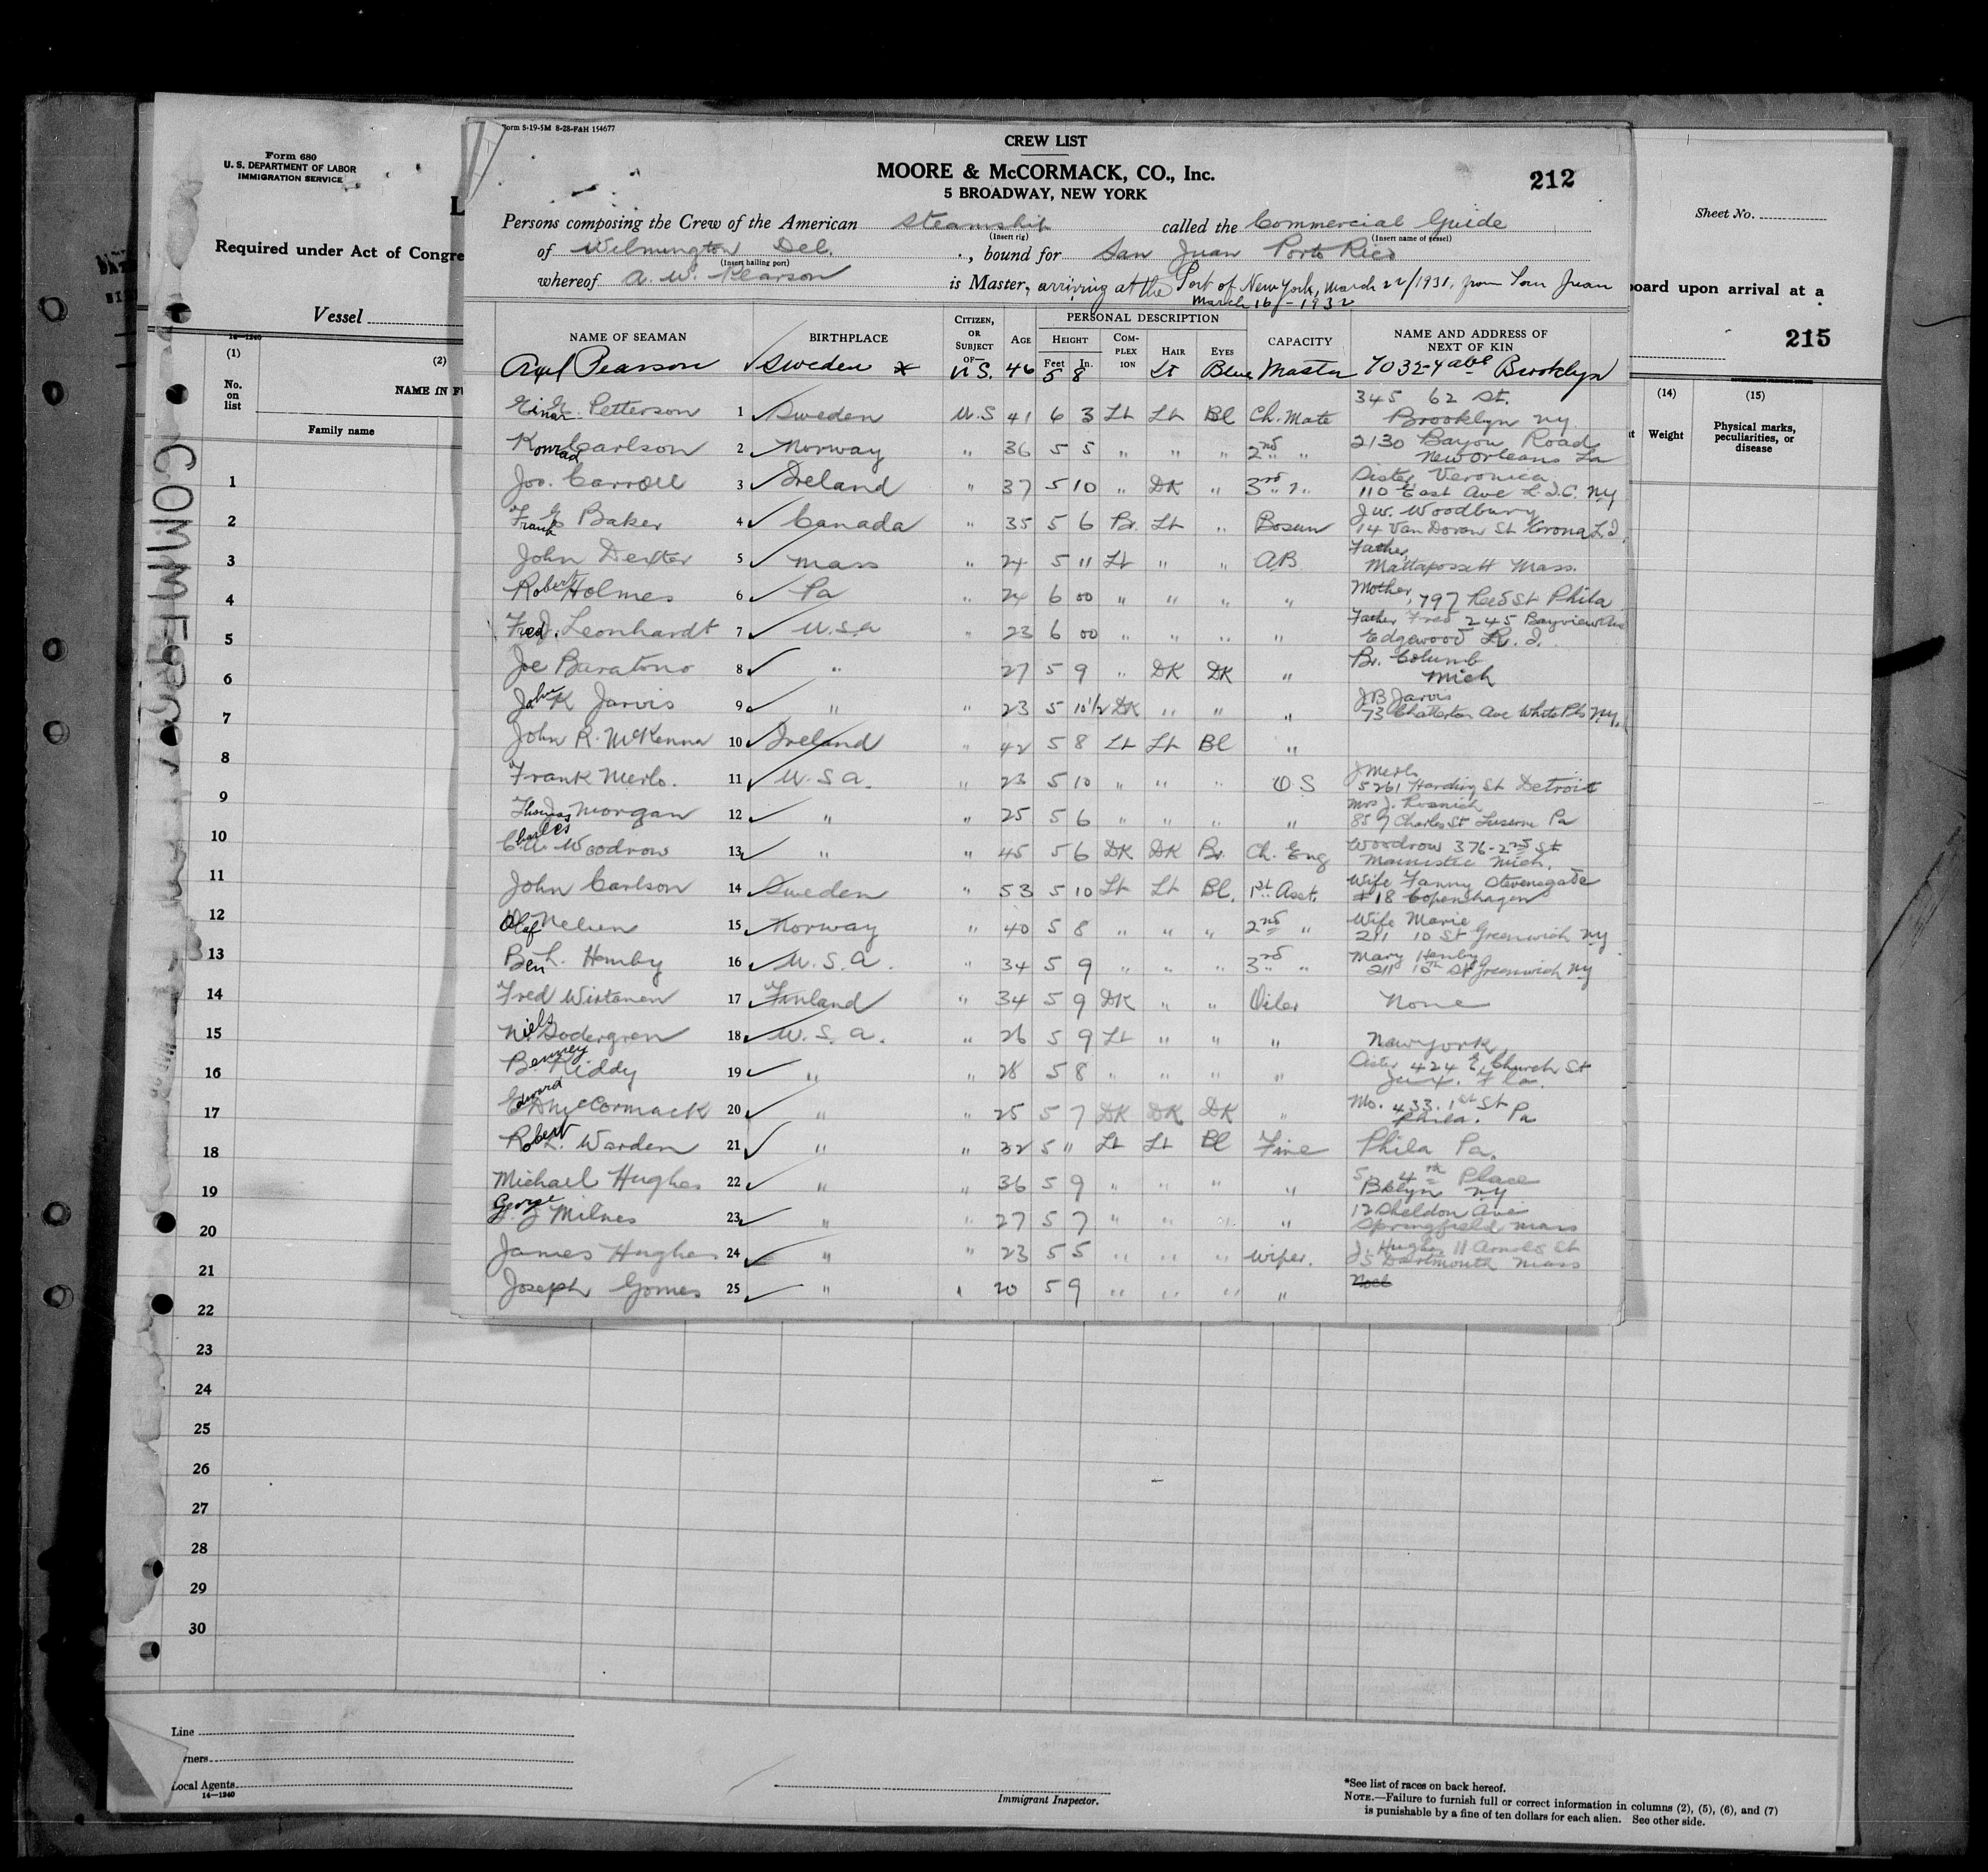 Form S-19-5M 8-28-F&H 154677
CREW LIST
MOORE & McCORMACK, CO., Inc.
5 BROADWAY, NEW YORK
212
Persons composing the Crew of the American Steamship called the Commercial Guide
(Insert rig) (Insert name of vessel)
of Wilmington Del. , bound for San Juan Porto Rico
(Insert hailing port)
whereof A. W. Pearson is Master, arriving at the Port of New York, March 22/1931, from San Juan
March 16 - 1932
NAME OF SEAMAN BIRTHPLACE CITIZEN, OR SUBJECT OF— AGE PERSONAL DESCRIPTION HEIGHT Feet In. COMPLEXION HAIR EYES CAPACITY NAME AND ADDRESS OF NEXT OF KIN
Axel Pearson Sweden x U.S. 46 5 8 Lt Blue Master 7032-4 ave Brooklyn
Einar E. Petterson 1 Sweden U.S 41 6 3 Lt Lt Bl Ch. Mate 345 62 St. Brooklyn NY
Konrad Carlson 2 Norway " 36 5 5 " " " 2nd " 2130 Bayou Road New Orleans La
Jos. Carroll 3 Ireland " 37 5 10 " DK " 3rd " Sister Veronica 110 East Ave L.I.C. NY
Frank G Baker 4 Canada " 35 5 6 Br. Lt " Bosun J W. Woodbury 14 Van Doran St Korona L.I.
John Dexter 5 Mass " 24 5 11 Lt " " AB Father Mattapossett Mass.
Robert Holmes 6 Pa " 24 6 00 " " " " Mother, 797 Reed St Phila
Fred J. Leonhardt 7 U.S.A " 23 6 00 " " " " Father Fred 245 Bayview Ave Edgewood R.I.
Joe Baratono 8 " 27 5 9 " DK DK " Br. Columb Mich
John K Jarvis 9 " " 23 5 10 1/2 DK " " " JB Jarvis 73 Chatterton Ave White Pls NY.
John R. McKenna 10 Ireland " 42 5 8 Lt Lt Bl "
Frank Merlo. 11 U.S.A. " 23 5 10 " " " O S J Merlo 5261 Harding St Detroit
Thomas Morgan 12 " " 25 5 6 " " " " Mrs J. 857 Charles St Luserne Pa
Charles W. Woodrow 13 " " 45 5 6 DK DK Br. Ch. Eng Woodrow 376-2nd St Manistee Mich.
John Carlson 14 Sweden " 53 5 10 Lt Lt Bl. 1st Asst. Wife Fanny Stevensgade #18 Copenhagen
Olaf Nelsen 15 Norway " 40 5 8 " " " 2nd " Wife Marie 211 10 St Greenwich NY
Ben L. Hemby 16 U.S.A. " 34 5 9 " " " 3rd " Mary Hemby 211 10th St Greenwich NY
Fred Wirtanen 17 Finland " 34 5 9 DK " " Oiler None
Niels Sodergren 18 U.S.A. " 26 5 9 Lt " " " New York
Benney Kiddy 19 " " 28 5 8 " " " " Sister 424 E. Church St Jax. Fla.
Edward McCormack 20 " " 25 5 7 DK DK DK " Mo. 433. 1st St Phila. Pa
Robert L. Warden 21 " " 32 5 11 Lt Lt Bl Fire Phila Pa.
Michael Hughes 22 " " 36 5 9 " " " " 5 4th Place Bklyn NY
George J Milnes 23 " " 27 5 7 " " " " 12 Sheldon Ave Springfield Mass
James Hughes 24 " " 23 5 5 " " " Wiper. J. Hughes 11 Arnold St So Dartmouth Mass
Joseph Gomes 25 " " 20 5 9 " " " "
Form 680
U. S. DEPARTMENT OF LABOR
IMMIGRATION SERVICE
L
Required under Act of Congre
Vessel
14-1240
(1) (2)
No. on list
NAME IN FU
Family name
Sheet No.
board upon arrival at a
215
(14) (15)
Weight Physical marks, peculiarities, or disease
COMMERCIAL
1
2
3
4
5
6
7
8
9
10
11
12
13
14
15
16
17
18
19
20
21
22
23
24
25
26
27
28
29
30
Line
wners
Local Agents
14—1240
Immigrant Inspector.
*See list of races on back hereof.
NOTE.—Failure to furnish full or correct information in columns (2), (5), (6), and (7)
is punishable by a fine of ten dollars for each alien. See other side.